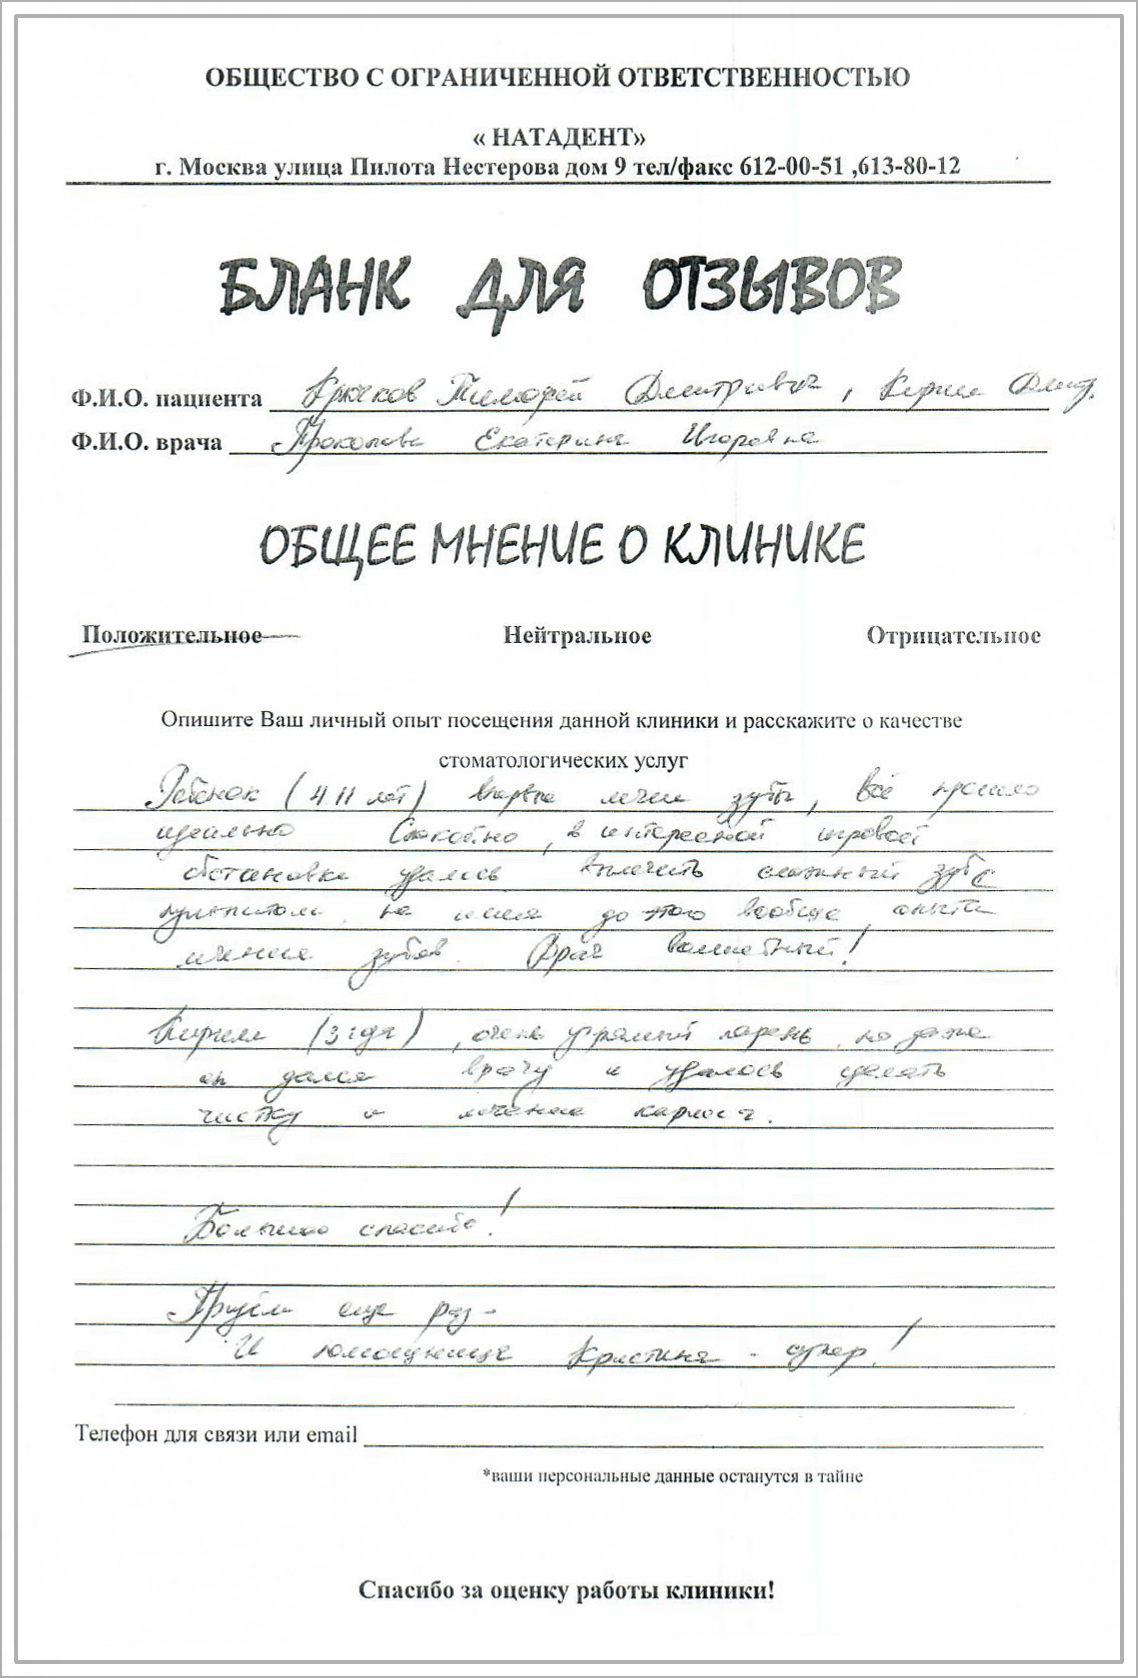 ОБЩЕСТВО С ОГРАНИЧЕННОЙ ОТВЕТСТВЕННОСТЬЮ
« НАТАДЕНТ»
г. Москва улица Пилота Нестерова дом 9 тел/факс 612-00-51 ,613-80-12
БЛАНК ДЛЯ ОТЗЫВОВ
Ф.И.О. пациента Крючков Тимофей Дмитриевич , Кирилл Дмитр.
Ф.И.О. врача Прокопова Екатерина Игоревна
ОБЩЕЕ МНЕНИЕ О КЛИНИКЕ
Положительное Нейтральное Отрицательное
Опишите Ваш личный опыт посещения данной клиники и расскажите о качестве
стоматологических услуг
Ребенок (4 11 лет) впервые лечил зубы, всё прошло
идеально Спокойно, в интересной игровой
обстановке удалось вылечить сложный зуб с
пульпитом, не имея до этого вообще опыта
лечения зубов. Врач волшебный!
Кирилл (3 года) , очень упрямый парень, но даже
он дался врачу и удалось сделать
чистку и лечение кариеса.
Большое спасибо!
Придём еще раз -
И помощница Кристина - супер!
Телефон для связи или email
*ваши персональные данные останутся в тайне
Спасибо за оценку работы клиники!